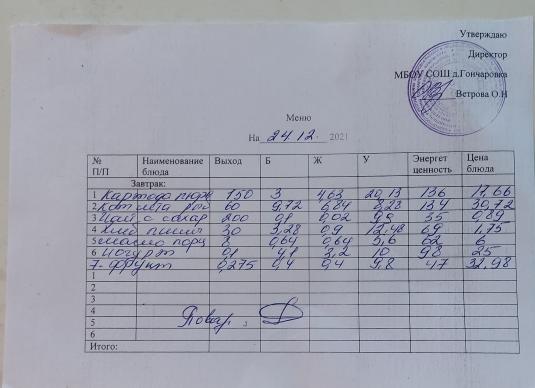 Утверждаю
Директор
МБОУ СОШ д.Гончаровка
Ветрова О.Н
Меню
На 24.12. 2021
№ П/П Наименование блюда Выход Б Ж У Энергет ценность Цена блюда
Завтрак:
1 Картоф пюре 150 3 4,63 20,13 136 17,66
2 Котлета 60 9,72 6,84 8,23 134 30,72
3 Чай с сахар 200 0,1 0,02 9,9 35 0,89
4 Хлеб пшен 30 3,28 0,9 12,48 69 1,75
5 масло порц 8 0,64 0,64 5,6 62 6
6 йогурт 0,1 4,1 3,2 10 98 25
7- фрукт 0,275 0,4 0,4 9,8 47 32,98
1
2
3
4
5
6
Повар:
Итого: